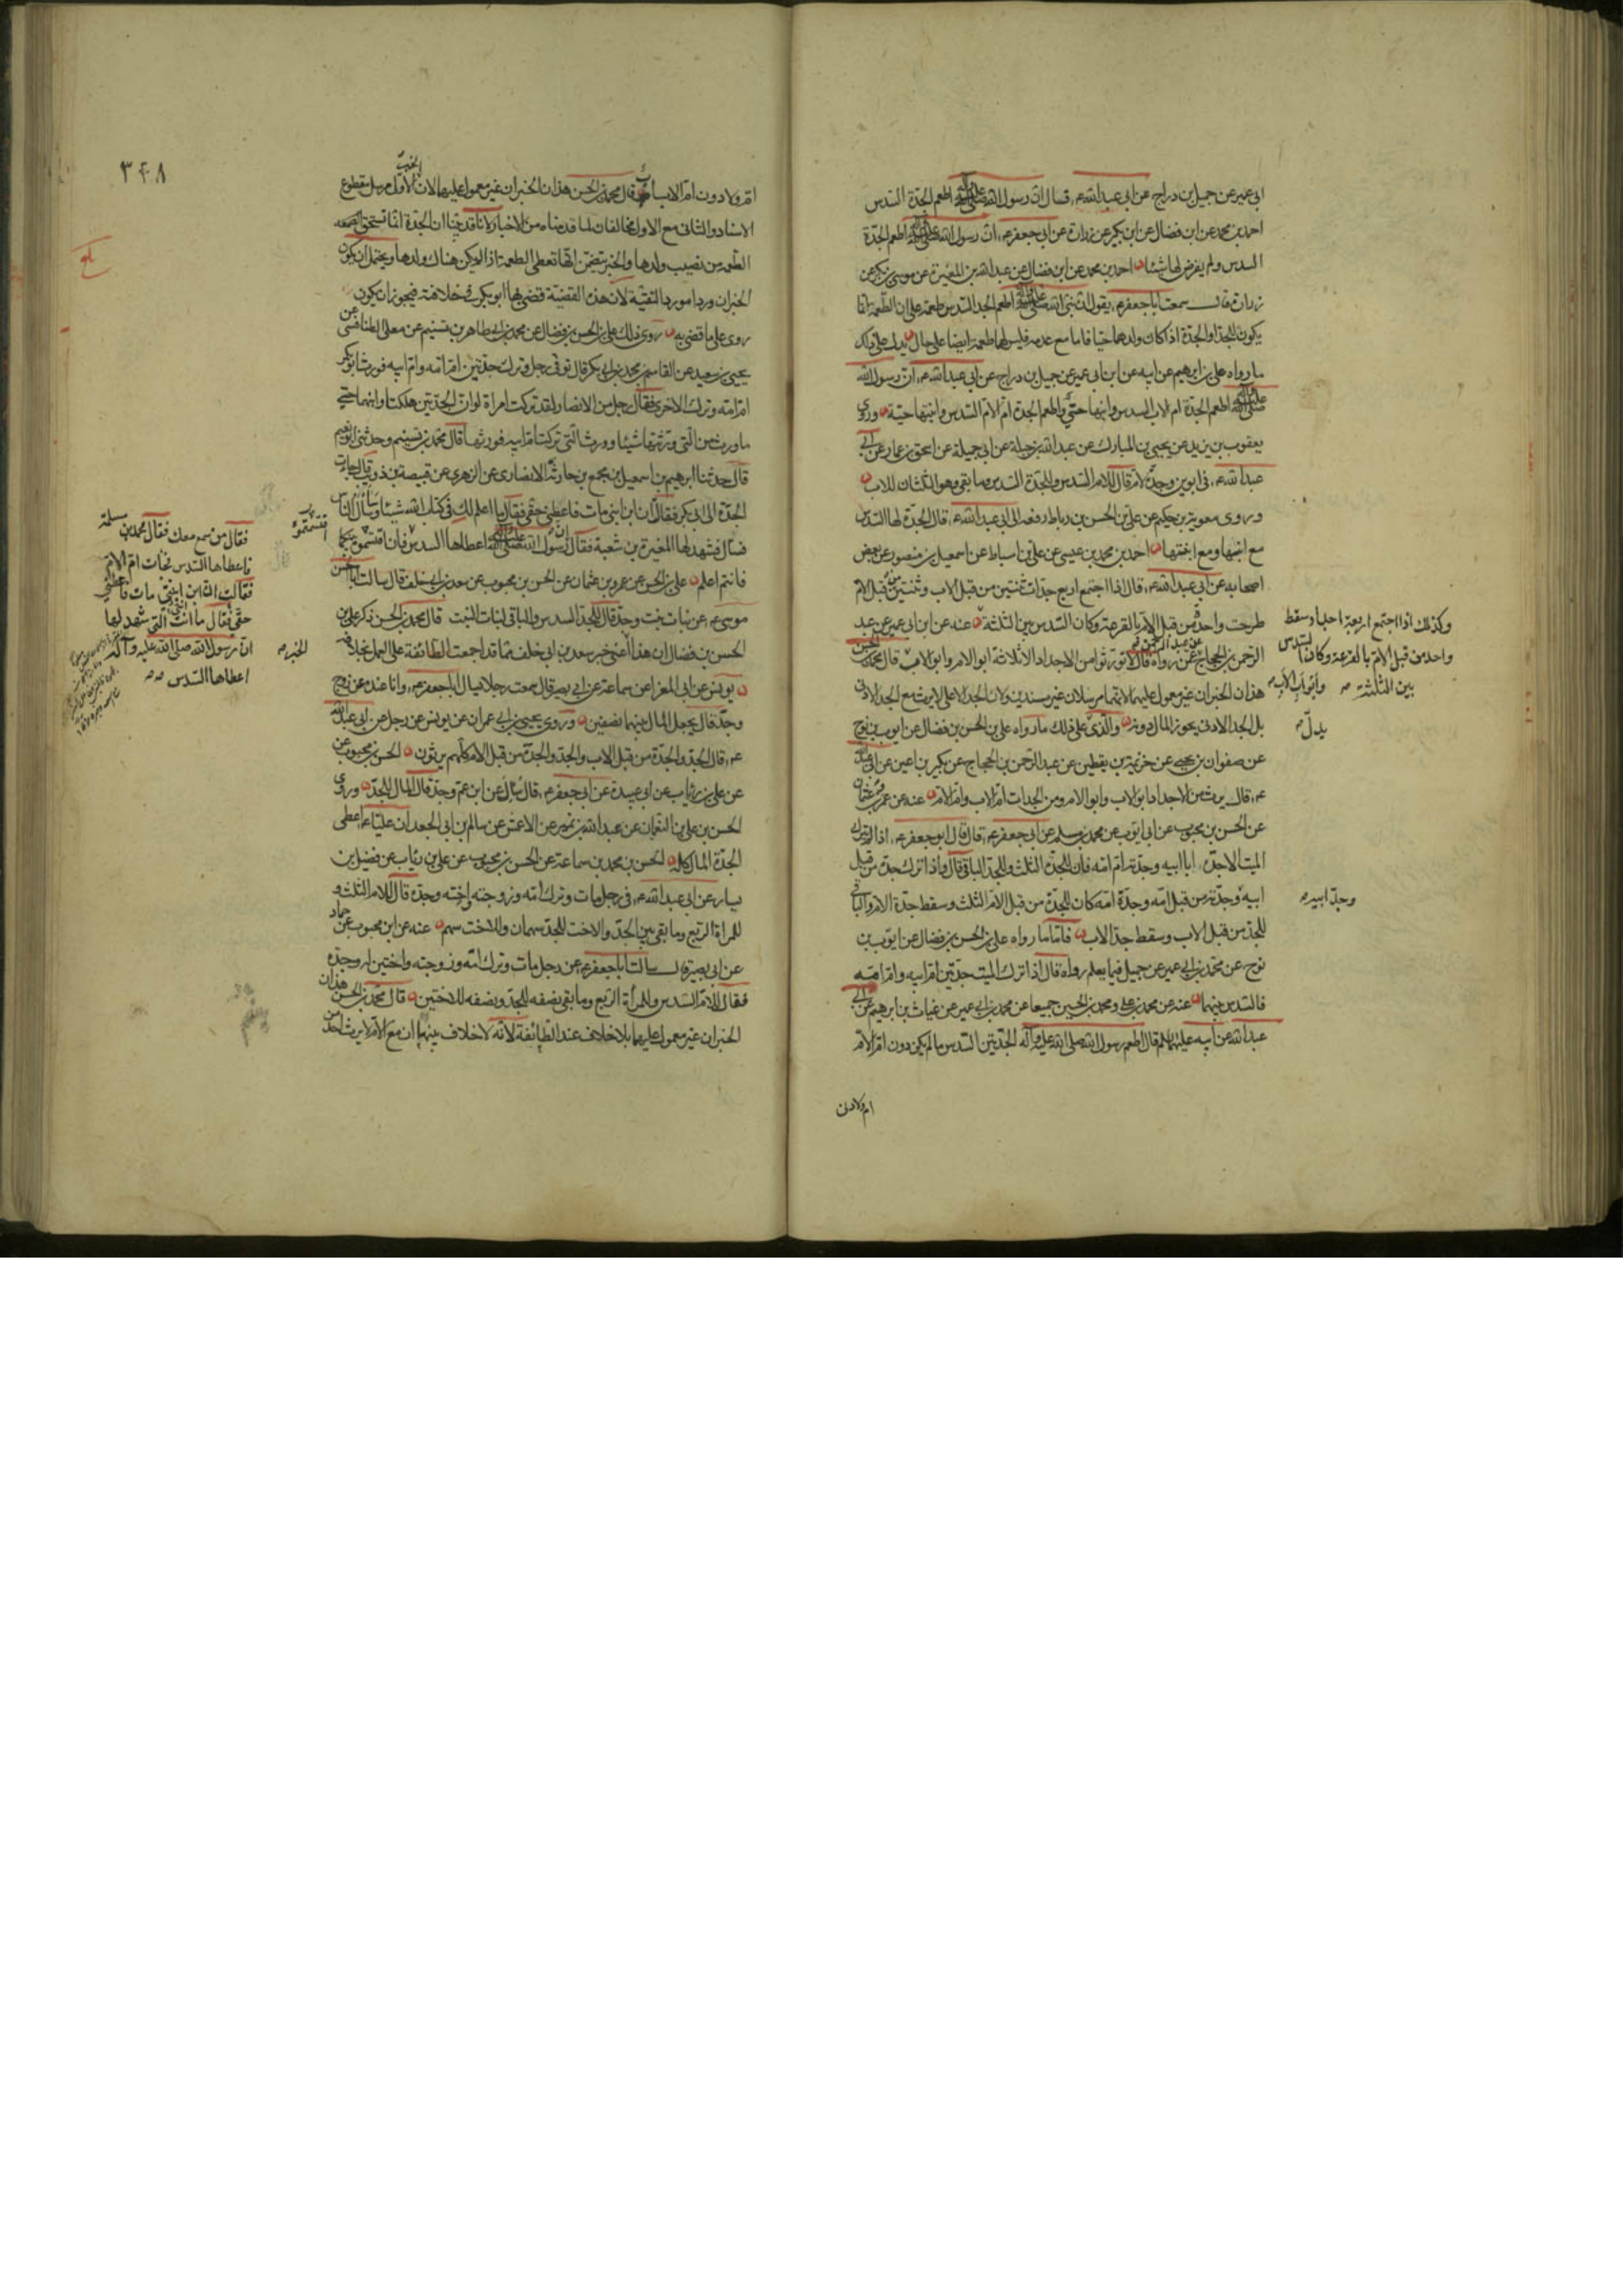 ابي عمير عن جميل بن دراج عن ابي عبد الله ع، قال ان رسول الله صلى الله عليه وآله اطعم الجدة السدس
احمد بن محمد عن ابن فضال عن ابن بكير عن زرارة عن ابي جعفر ع، ان رسول الله صلى الله عليه وآله اطعم الجدة
السدس ولم يفرض لها شيئا احمد بن محمد عن ابن فضال عن عبد الله بن المغيرة عن موسى بن بكر عن
زرارة قال سمعت ابا جعفر ع، يقول ان نبي الله صلى الله عليه وآله اطعم الجد السدس طعمة على ان الطعمة انما
يكون للجد او الجدة اذا كان ولدهما حيا فاما مع عدمه فليس لهما طعمة ايضا على حال يدل على ذلك
ما رواه علي بن ابرهيم عن ابيه عن ابن ابي عمير عن جميل بن دراج عن ابي عبد الله ع، ان رسول الله
صلى الله عليه وآله اطعم الجدة ام الاب السدس وابنها حي واطعم الجدة ام الام السدس وابنتها حية وروى
يعقوب بن يزيد عن يحيى بن المبارك عن عبد الله بن جبلة عن ابي جميلة عن اسحق بن عمار عن ابي
عبد الله ع، في ابوين وجدة لام قال للام السدس وللجدة السدس وما بقي وهو الثلثان للاب
وروى معوية بن حكيم عن علي بن الحسن بن رباط رفعه الى ابي عبد الله ع، قال الجدة لها السدس
مع ابنها ومع ابنتها احمد بن محمد بن عيسى عن علي بن اسباط عن اسمعيل بن منصور عن بعض
اصحابه عن ابي عبد الله ع، قال اذا اجتمع اربع جدات ثنتين من قبل الاب وثنتين من قبل الام
طرحت واحدة من قبل الام بالقرعة وكان السدس بين الثلثة عنه عن ابن ابي عمير عن عبد
الرحمن بن الحجاج عن رواه قال لا تورثوا من الاجداد الا ثلاثة ابو الام وابو الاب قال محمد بن الحسن
هذان الخبران غير معمول عليهما لانهما مرسلان غير مسندين ولان الجد الاعلى لا يرث مع الجد الادنى
بل الجد الادنى يحوز المال دونه والذي على ذلك ما رواه علي بن الحسن بن فضال عن ايوب بن نوح
عن صفوان بن يحيى عن خزيمة بن يقطين عن عبد الرحمن بن الحجاج عن بكير بن اعين عن ابي عبد الله
ع، قال يرث من الاجداد ابو الاب وابو الام ومن الجدات ام الاب وام الام عنه عن عمرو بن عثمان
عن الحسن بن محبوب عن ابي ايوب عن محمد بن مسلم عن ابي جعفر ع، قال قال ابو جعفر ع، اذا لم يترك
الميت الا جده ابا ابيه وجدته ام امه فان للجدة الثلث وللجد الباقي قال واذا ترك جده من قبل
ابيه وجدته من قبل امه وجدة امه كان للجدة من قبل الام الثلث وسقط جدة الام والباقي
للجد من قبل الاب وسقط جد الاب فاما ما رواه علي بن الحسن بن فضال عن ايوب بن
نوح عن محمد بن ابي عمير عن جميل فيما يعلم رواه قال اذا ترك الميت جدتين ام ابيه وام امه
فالسدس بينهما عنه عن محمد بن علي ومحمد بن الحسين جميعا عن محمد بن ابي عمير عن غياث بن ابرهيم عن ابي
عبد الله عن ابيه عليهما السلم قال اطعم رسول الله صلى الله عليه وآله الجدتين السدس ما لم يكن دون ام الام
وكذلك اذا اجتمع اربعة اجداد سقط
واحد من قبل الام بالقرعة وكان السدس
بين الثلثة
وابو اب الاب
يدل
وجد ابيه
ام ولا دون
٣٤٨
ام ولا دون ام الاب اب قال محمد بن الحسن هذان الخبران غير معمول عليهما لان الخبر الاول مرسل مقطوع
الاسناد والثاني مع الاول مخالفان لما قدمناه من الاخبار لانا قد بينا ان الجدة انما تستحق
الطعمة من نصيب ولدها والخبر تضمن انها تعطى الطعمة اذا لم يكن هناك ولدها ويحتمل ان يكون
الخبران وردا مورد التقية لان هذه القضية قضى بها ابو بكر في خلافته فيجوز ان يكون
روى على ما قضى به روى ذلك علي بن الحسن بن فضال عن محمد بن ابي طاهر بن تسنيم عن معلى الطنافسي عن
يحيى بن سعيد عن القاسم بن محمد بن ابي بكر قال توفي رجل وترك جدتين ام امه وام ابيه فورث ابو بكر
ام امه وترك الاخرى فقال رجل من الانصار لقد تركت امراة لو ان الجدتين هلكتا وابنهما حي
ما ورث من التي ورثتها شيئا وورث التي تركت ام ابيه فورثها قال محمد بن تسنيم وحدثني ابو نعيم
قال حدثنا ابرهيم بن اسمعيل بن مجمع بن حارثة الانصاري عن الزهري عن قبيصة بن ذويب قال جاءت
الجدة الى ابي بكر فقالت ان ابن ابني مات فاعطني حقي فقال ما اعلم لك في كتاب الله شيئا وسأل الناس
فسال فشهد لها المغيرة بن شعبة فقال ان رسول الله صلى الله عليه وآله اعطاها السدس فان اقتسموه بينكما
فانتم اعلم علي بن الحسن عن عمرو بن عثمان عن الحسن بن محبوب عن سعد بن ابي خلف قال سالت ابا الحسن
موسى ع، عن بنات بنت وجد قال للجد السدس والباقي لبنات البنت قال محمد بن الحسن ذكر علي بن
الحسن بن فضال ان هذا اعني خبر سعد بن ابي خلف مما قد اجمعت الطائفة على العمل بخلافه
يونس عن ابي المغرا عن سماعة عن ابي بصير قال سمعت رجلا يسال ابا جعفر ع، وانا عنده عن زوج
وجد قال يجعل المال بينهما نصفين وروى يحيى بن ابي عمران عن يونس عن رجل عن ابي عبد الله
ع، قال الجد والجدة من قبل الاب والجد والجدة من قبل الام كلهم يرثون الحسن بن محبوب عن
عن علي بن رئاب عن ابي عبيدة عن ابي جعفر ع، قال سئل عن ابن عم وجد قال المال للجد وروى
الحسن بن علي بن النعمان عن عبد الله بن نمير عن الاعمش عن سالم بن ابي الجعد ان عليا ع اعطى
الجدة المال كله الحسن بن محمد بن سماعة عن الحسن بن محبوب عن علي بن رئاب عن فضيل بن
يسار عن ابي عبد الله ع، في رجل مات وترك امه وزوجته واخته وجده قال للام الثلث و
للمراة الربع وما بقي بين الجد والاخت للجد سهمان وللاخت سهم عنه عن ابن محبوب عن حماد
عن ابي بصير قال سالت ابا جعفر ع، عن رجل مات وترك امه وزوجته واختين له وجده
فقال للام السدس وللمرأة الربع وما بقي نصفه للجد ونصفه للاختين قال محمد بن الحسن هذان
الخبران غير معمول عليهما بلا خلاف عند الطائفة لانه لا خلاف بينهم ان مع الام لا يرث احد من
اقتسمتموه
فقال من سمع معك فقال محمد بن مسلمة
فاعطاها السدس فجاءت ام الام
فقالت ان ابن ابنتي مات فاعطني
حقي فقال ما انت التي شهد لها
ان رسول الله صلى الله عليه وآله
اعطاها السدس
الخبر